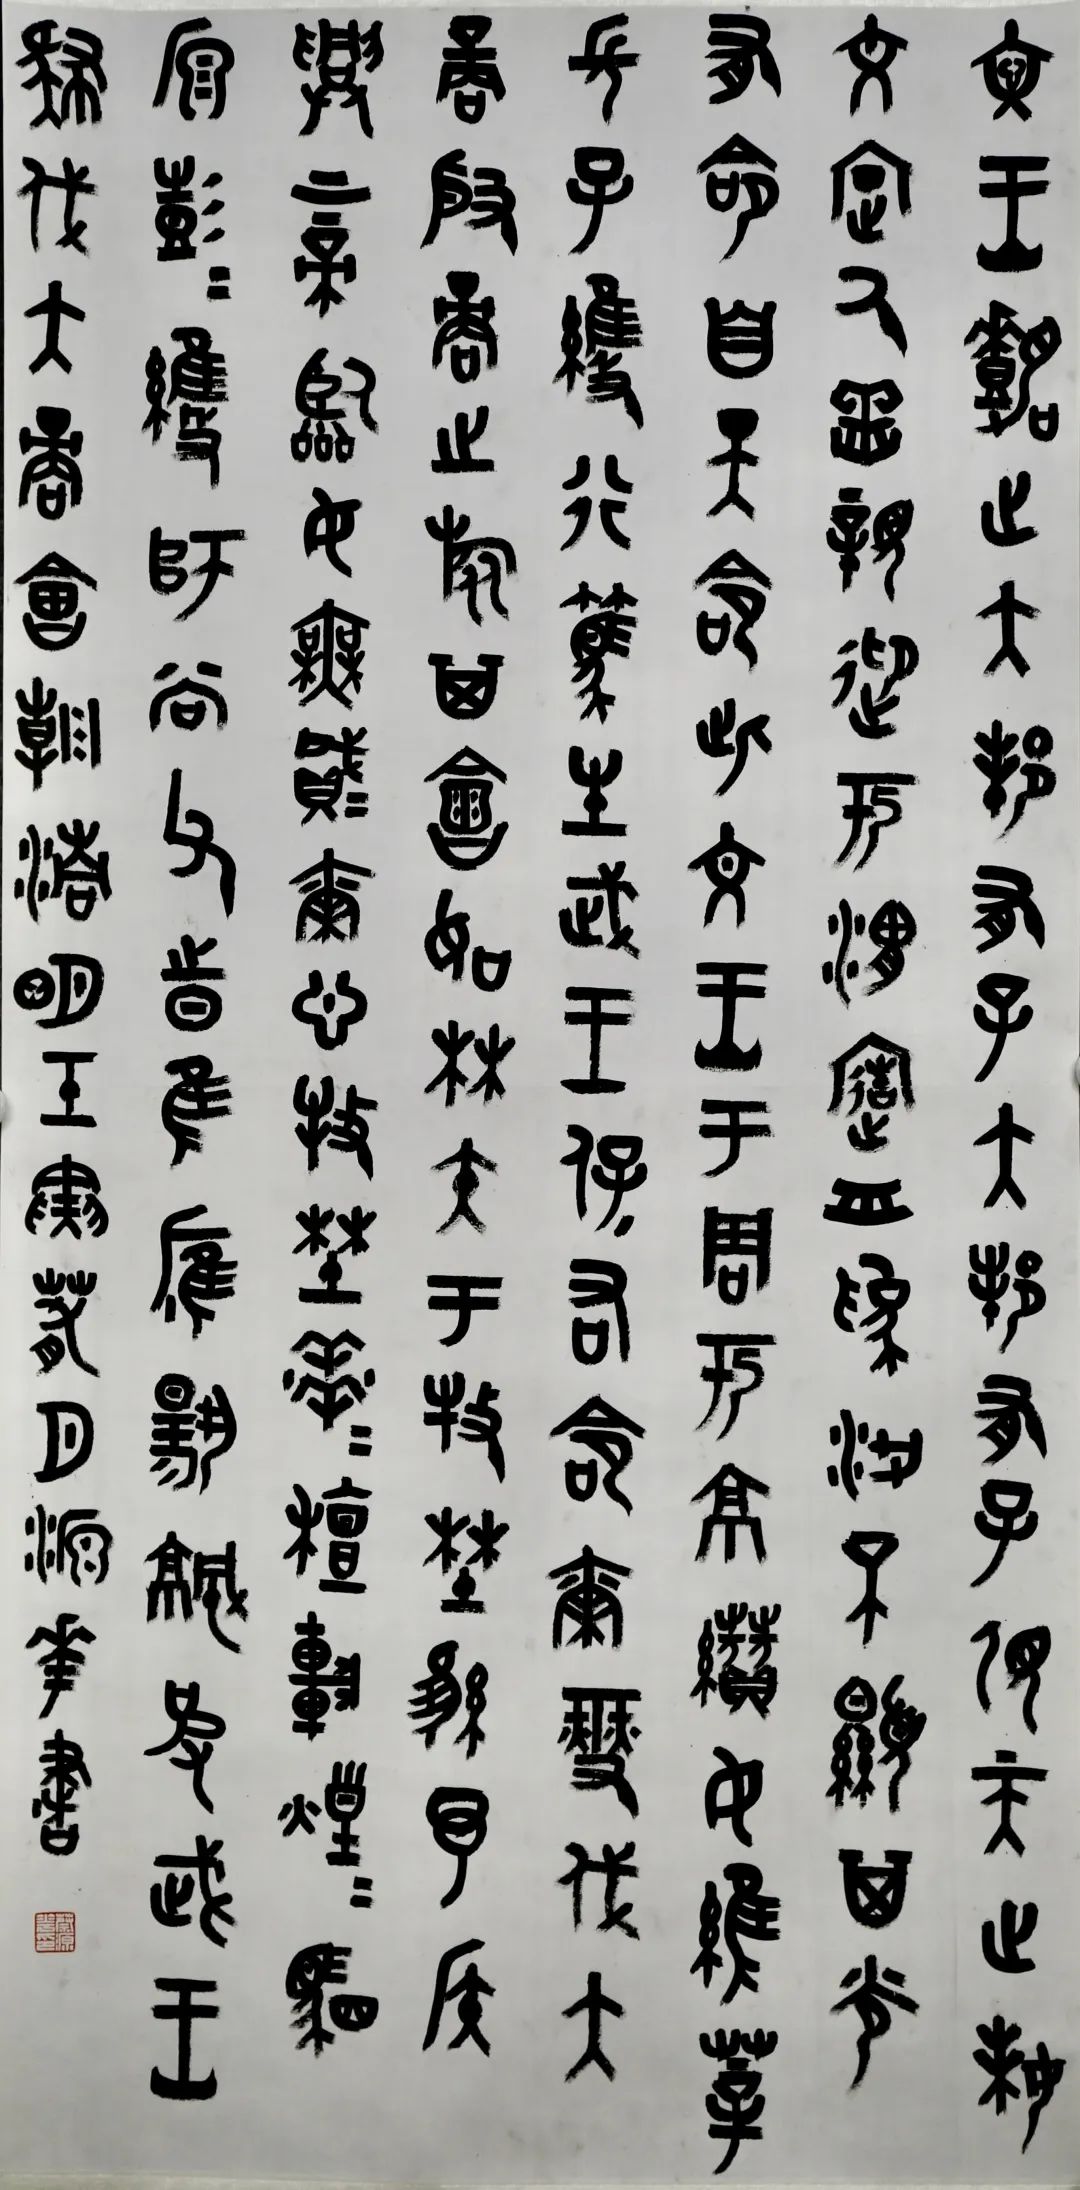 文王嘉止大邦有子大邦有子俔天之妹
文定厥祥親迎于渭造舟為梁不顯其光
有命自天命此文王于周于京纘女維莘
長子維行篤生武王保右命爾燮伐大
商殷商之旅其會如林矢于牧野維予侯
興上帝臨女無貳爾心牧野洋＝檀車煌＝駟
騵彭＝維師尚父時維鷹揚涼彼武王
肆伐大商會朝清明壬寅春月源華書